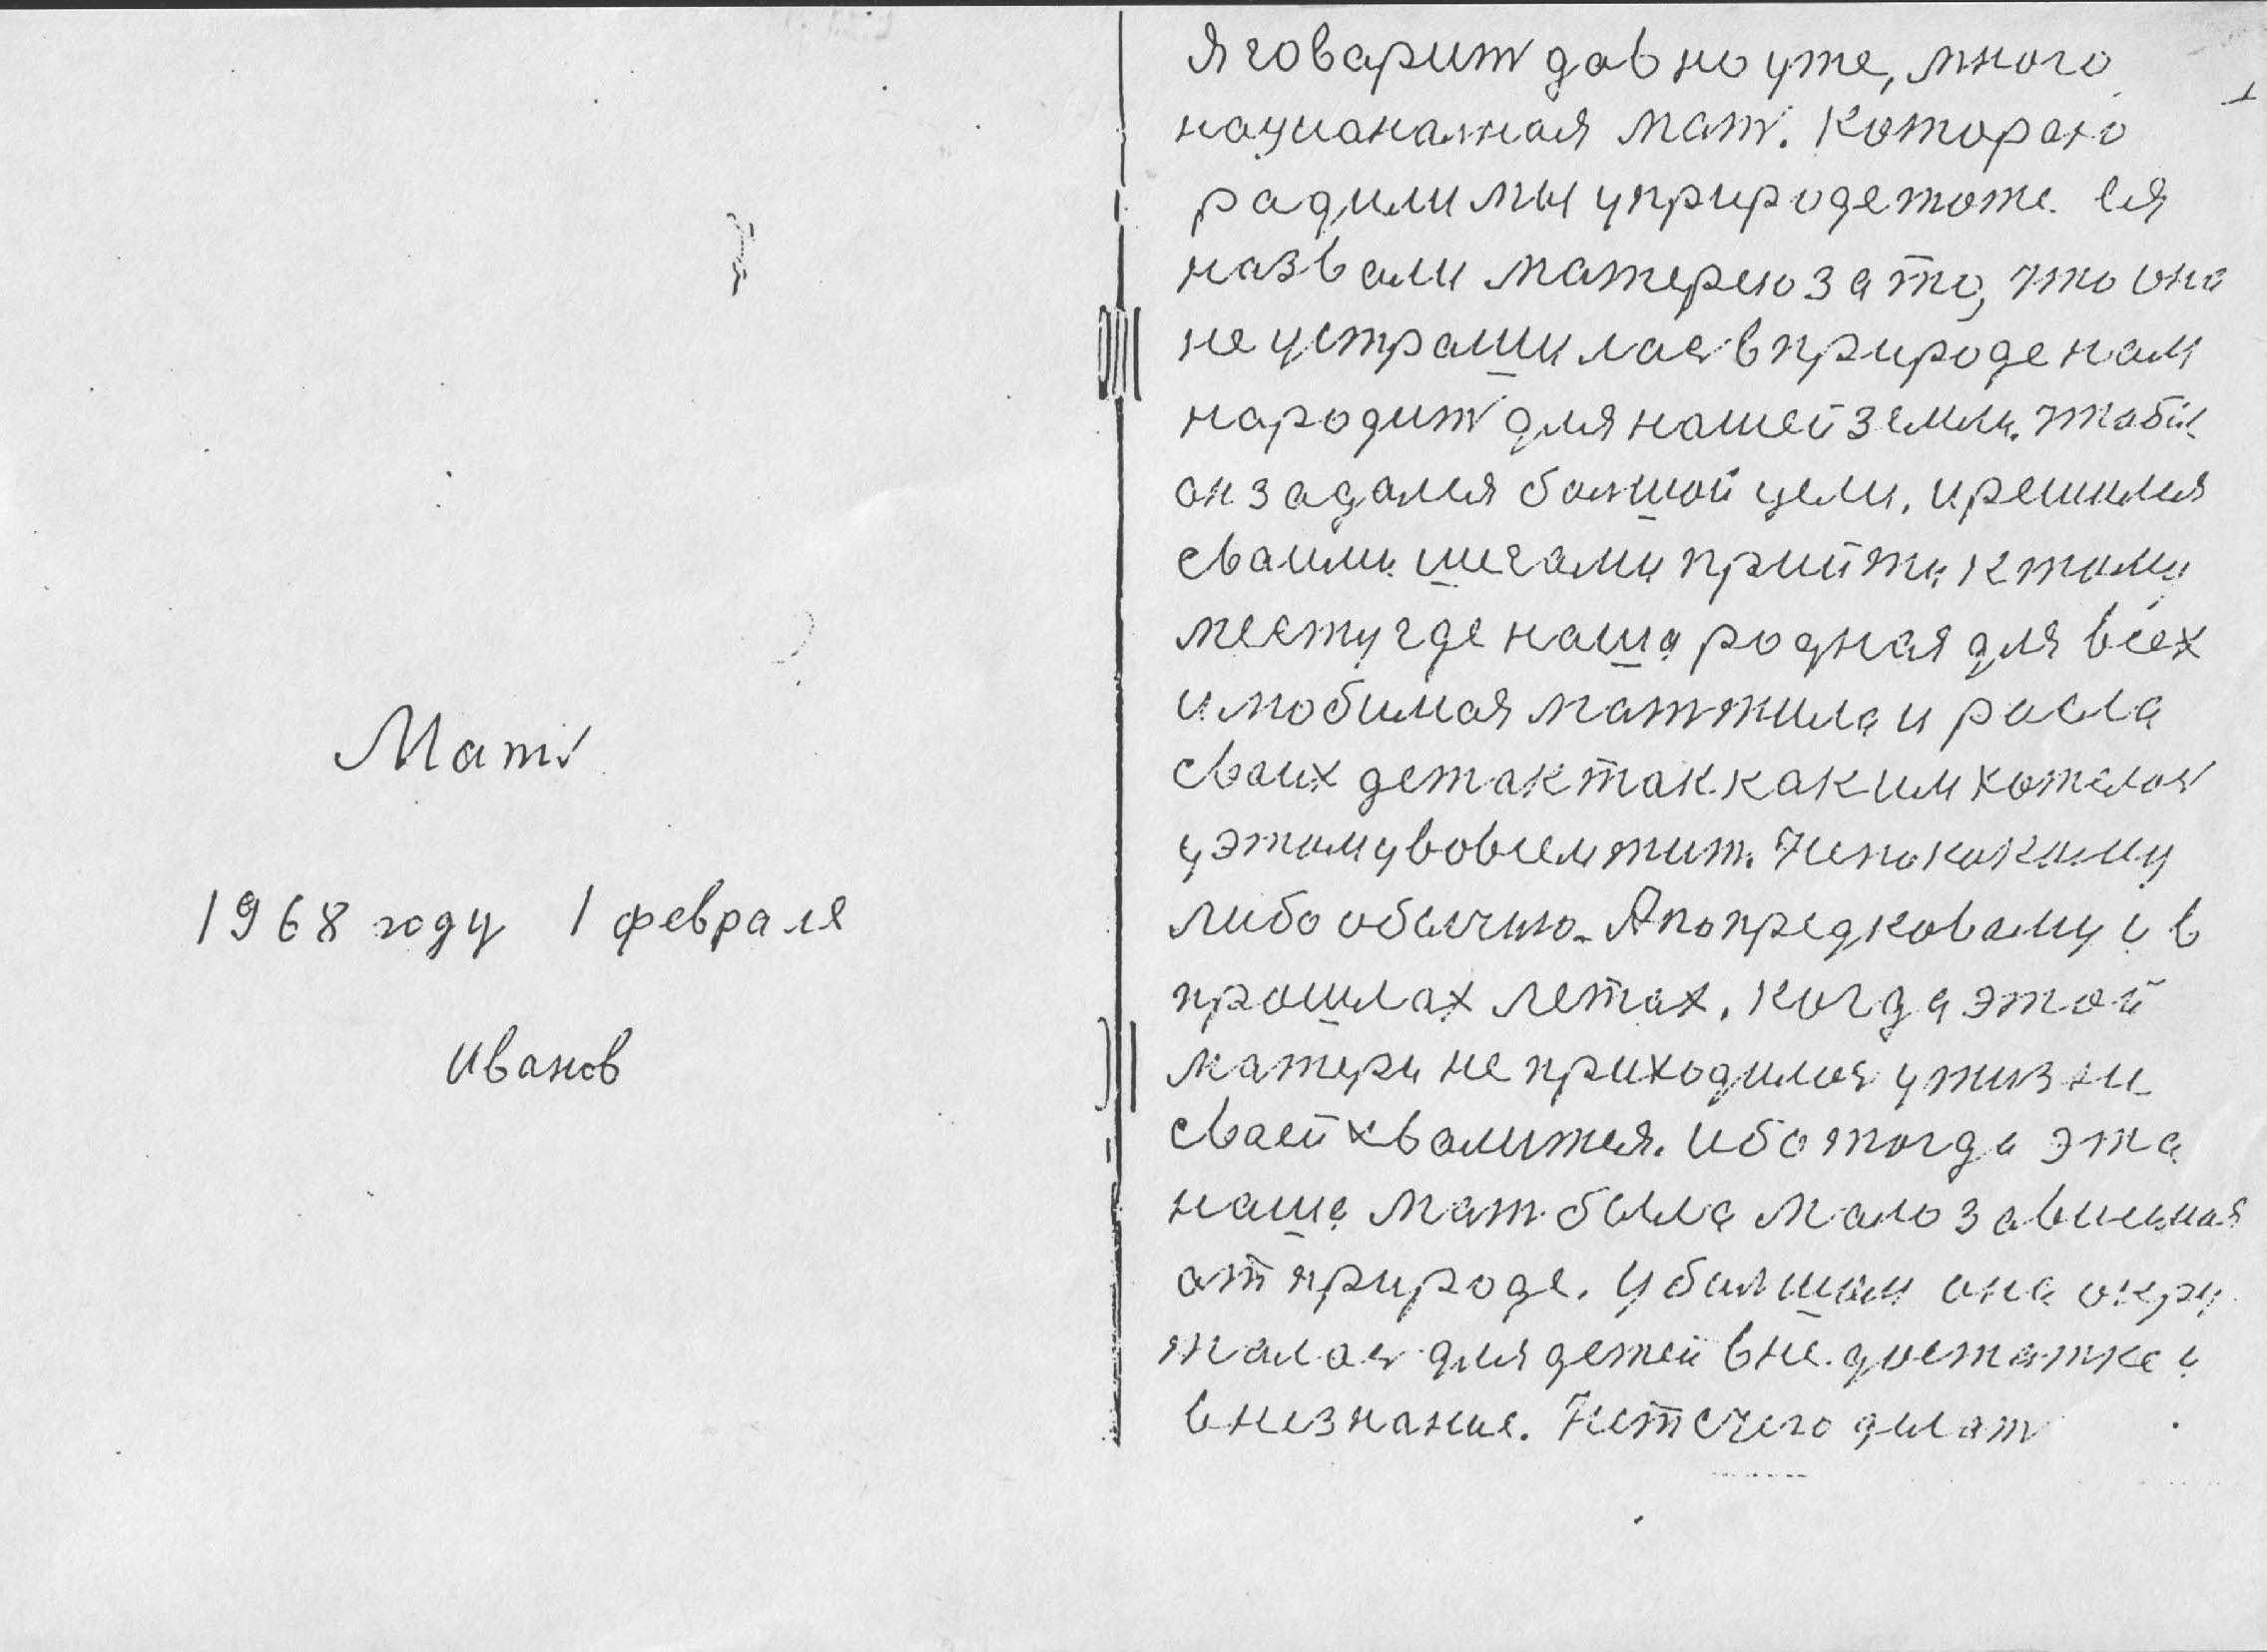 Мать
1968 году 1 февраля
Иванов
1
Я говарить давно уже, много
национальная мать. Котораю
радили мы у природе тоже ея
назвали матерею за то, что она
не устрашилась в природе нам
народить для нашей земли. Чтобы
он задался большой цели, и решился
сваими шегами прийти к тому
месту где наша родная для всех
и любимая мать жила и расла
сваих деток так как им хотелось
у этому во всем жить. Не по какому
либо обычию. А по предковаму и в
прошлах летах. Когда этой
матери не приходилось у жизни
сваей хвалится. Ибо тогда эта
наша мать была мало зависимая
от природе. У большом она окру
жалась для детей в не достатке и
в незнание. Нет с чего делать